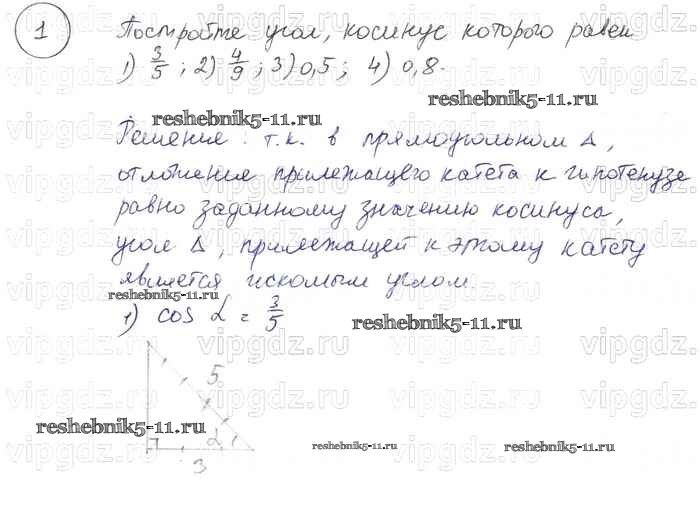 1 Постройте угол, косинус которого равен
1) 3/5; 2) 4/9; 3) 0,5; 4) 0,8.
reshebnik5-11.ru
Решение: т.к. в прямоугольном Δ,
отношение прилежащего катета к гипотенузе
равно заданному значению косинуса,
угол Δ, прилежащей к этому катету
является искомым углом.
reshebnik5-11.ru
1) cos α = 3/5
reshebnik5-11.ru
5
reshebnik5-11.ru
α
3
reshebnik5-11.ru
reshebnik5-11.ru
vipgdz.ru